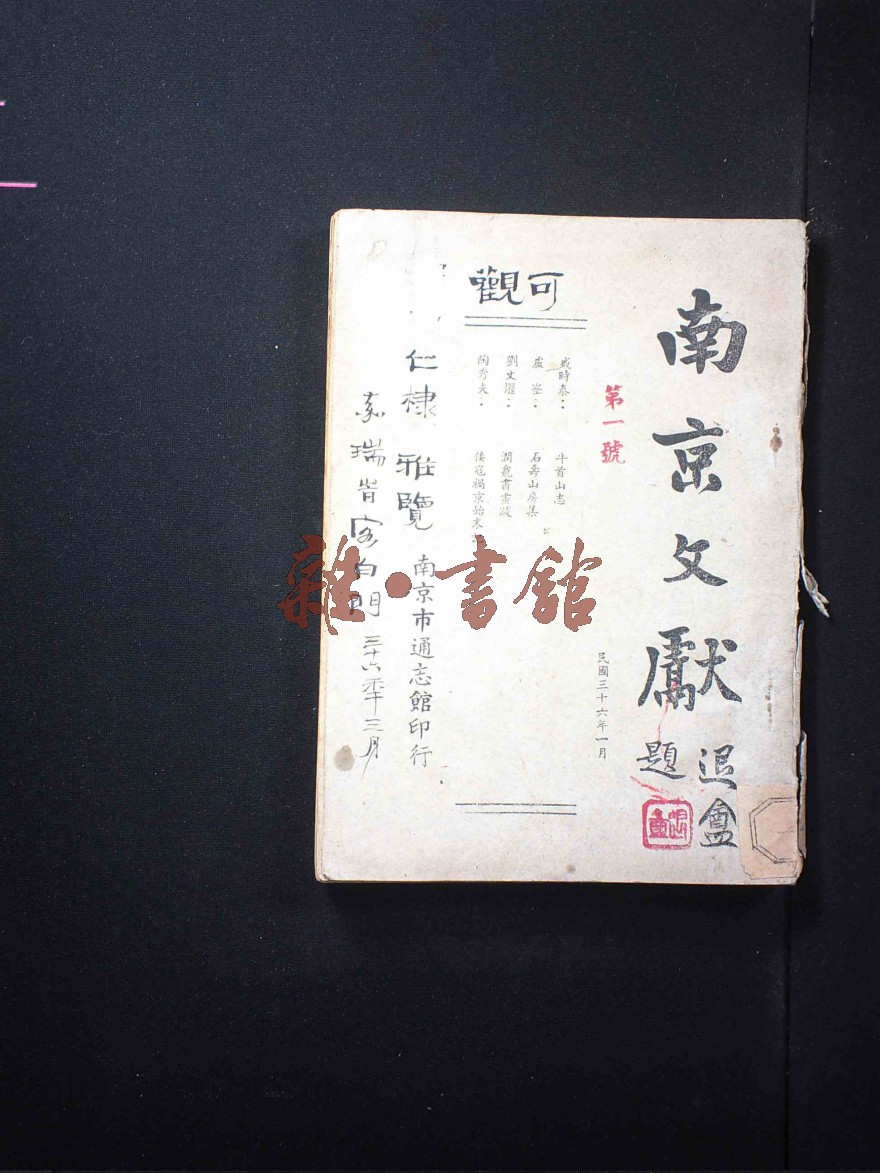 南京文獻
退盦
題
第一號
民國三十六年一月
可觀
盛時泰：牛首山志
盧崟：石壽山房集
劉文燿：潤龕書畫跋
陶秀夫：倭寇禍京始末
仁棣雅覽
南京市通志館印行
瑞
客白門三十六年三月
雜·書館